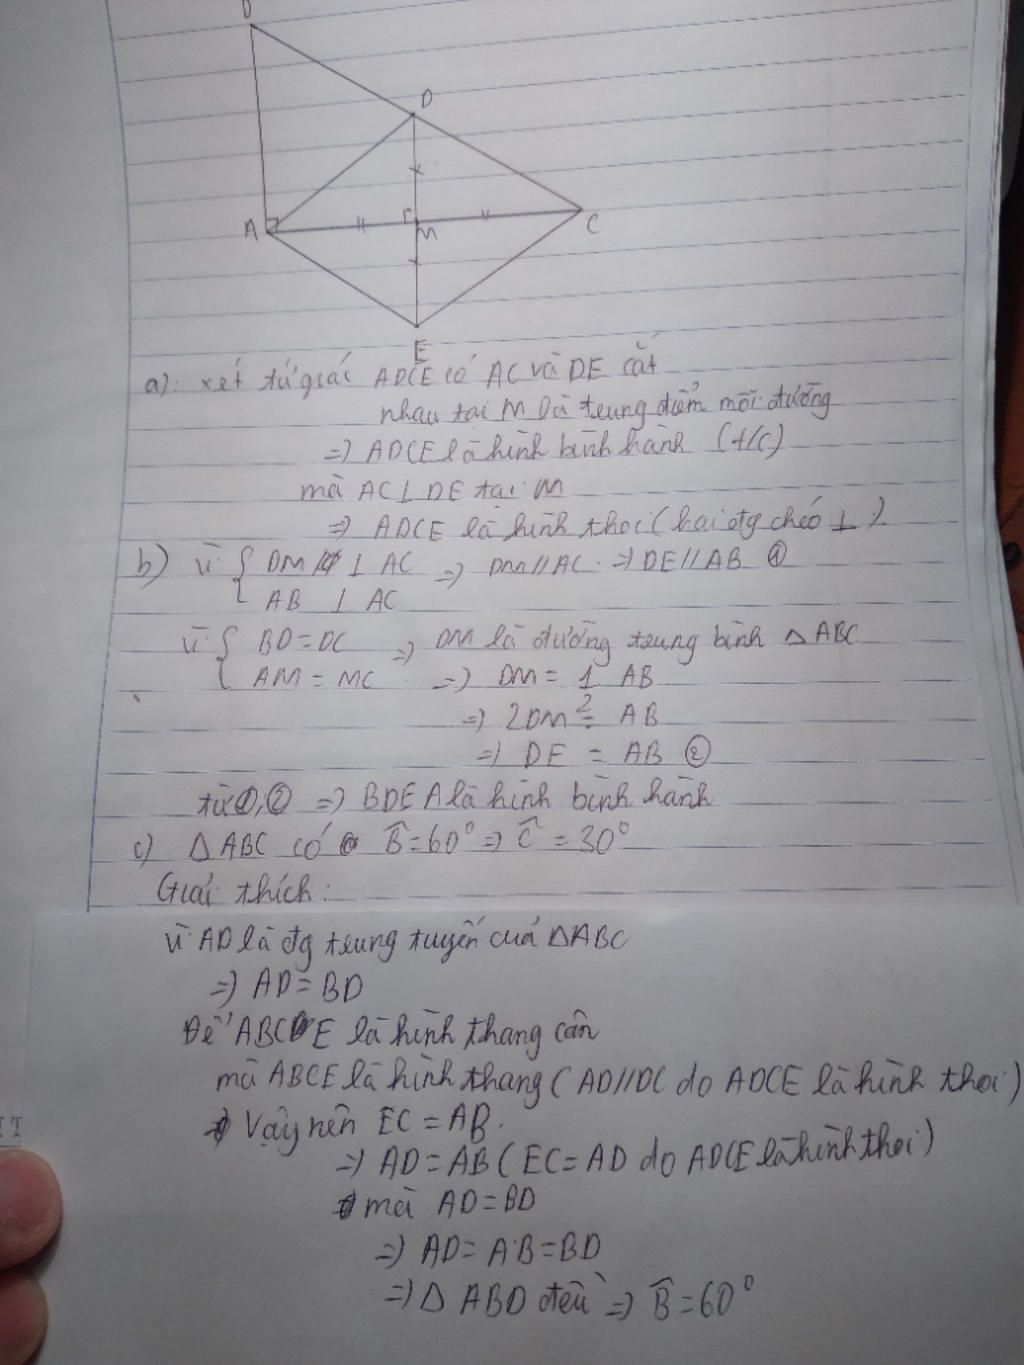 D
A
M
C
E
a): xét tứ giác ADCE có AC và DE cắt
nhau tại M là trung điểm mỗi đường
=) ADCE là hình bình hành (t/c)
mà AC ⊥ DE tại M
=) ADCE là hình thoi (hai đg chéo ⊥)
b) vì { DM ⊥ AC =) DM // AC =) DE // AB ①
AB ⊥ AC
vì { BD = DC =) DM là đường trung bình △ ABC
AM = MC =) DM = 1/2 AB
=) 2DM = AB
=) DE = AB ②
từ ①, ② =) BDEA là hình bình hành
c) △ ABC có B̂ = 60° =) Ĉ = 30°
Giải thích:
vì AD là đg trung tuyến của △ABC
=) AD = BD
Để ABCE là hình thang cân
mà ABCE là hình thang ( AD // DC do ADCE là hình thoi )
Vậy nên EC = AB.
=) AD = AB ( EC = AD do ADCE là hình thoi )
mà AD = BD
=) AD = AB = BD
=) △ ABD đều =) B̂ = 60°